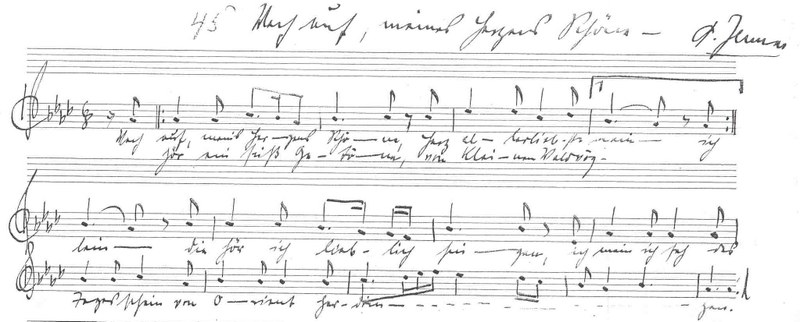 45 Wach auf, meines Herzens Schöne —
Wach auf, meins Her-zens Schö—ne, Herz al-lerlieb-ste mein— ich
hör ein süß Ge-tö—ne, von klei-nen Waldvög-
lein— die hör ich lieb-lich sin-gen, ich mein ich seh des
Tages schein von O—rient her-drin— gen.